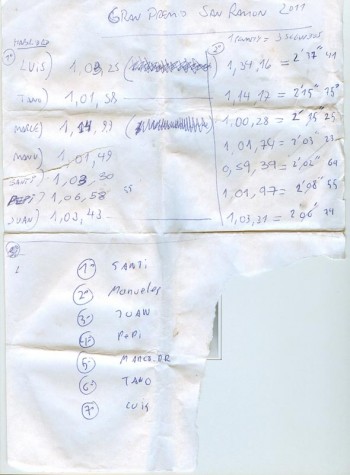 GRAN PREMIO SAN RAMON 2011
1 PUNTO = 3 SEGUNDOS
1º 2º
LUIS) 1,03,25 1,34,16 = 2'37" 41
TANO) 1,01,58 1,14,17 = 2'15" 75"
MARCE) 1,14,97 1,00,28 = 2" 15 25
MANU) 1,01,49 1,01,74 = 2'03" 23
SANTI) 1,03,30 0,59,39 = 2'02" 69
PEPI) 1,06,58 1,01,97 = 2'08" 55
JUAN) 1,03,43 1,03,31 = 2'06" 74
1º SANTI
2º Manueles
3º JUAN
4º PEPI
5º
6º TANO
7º LUIS